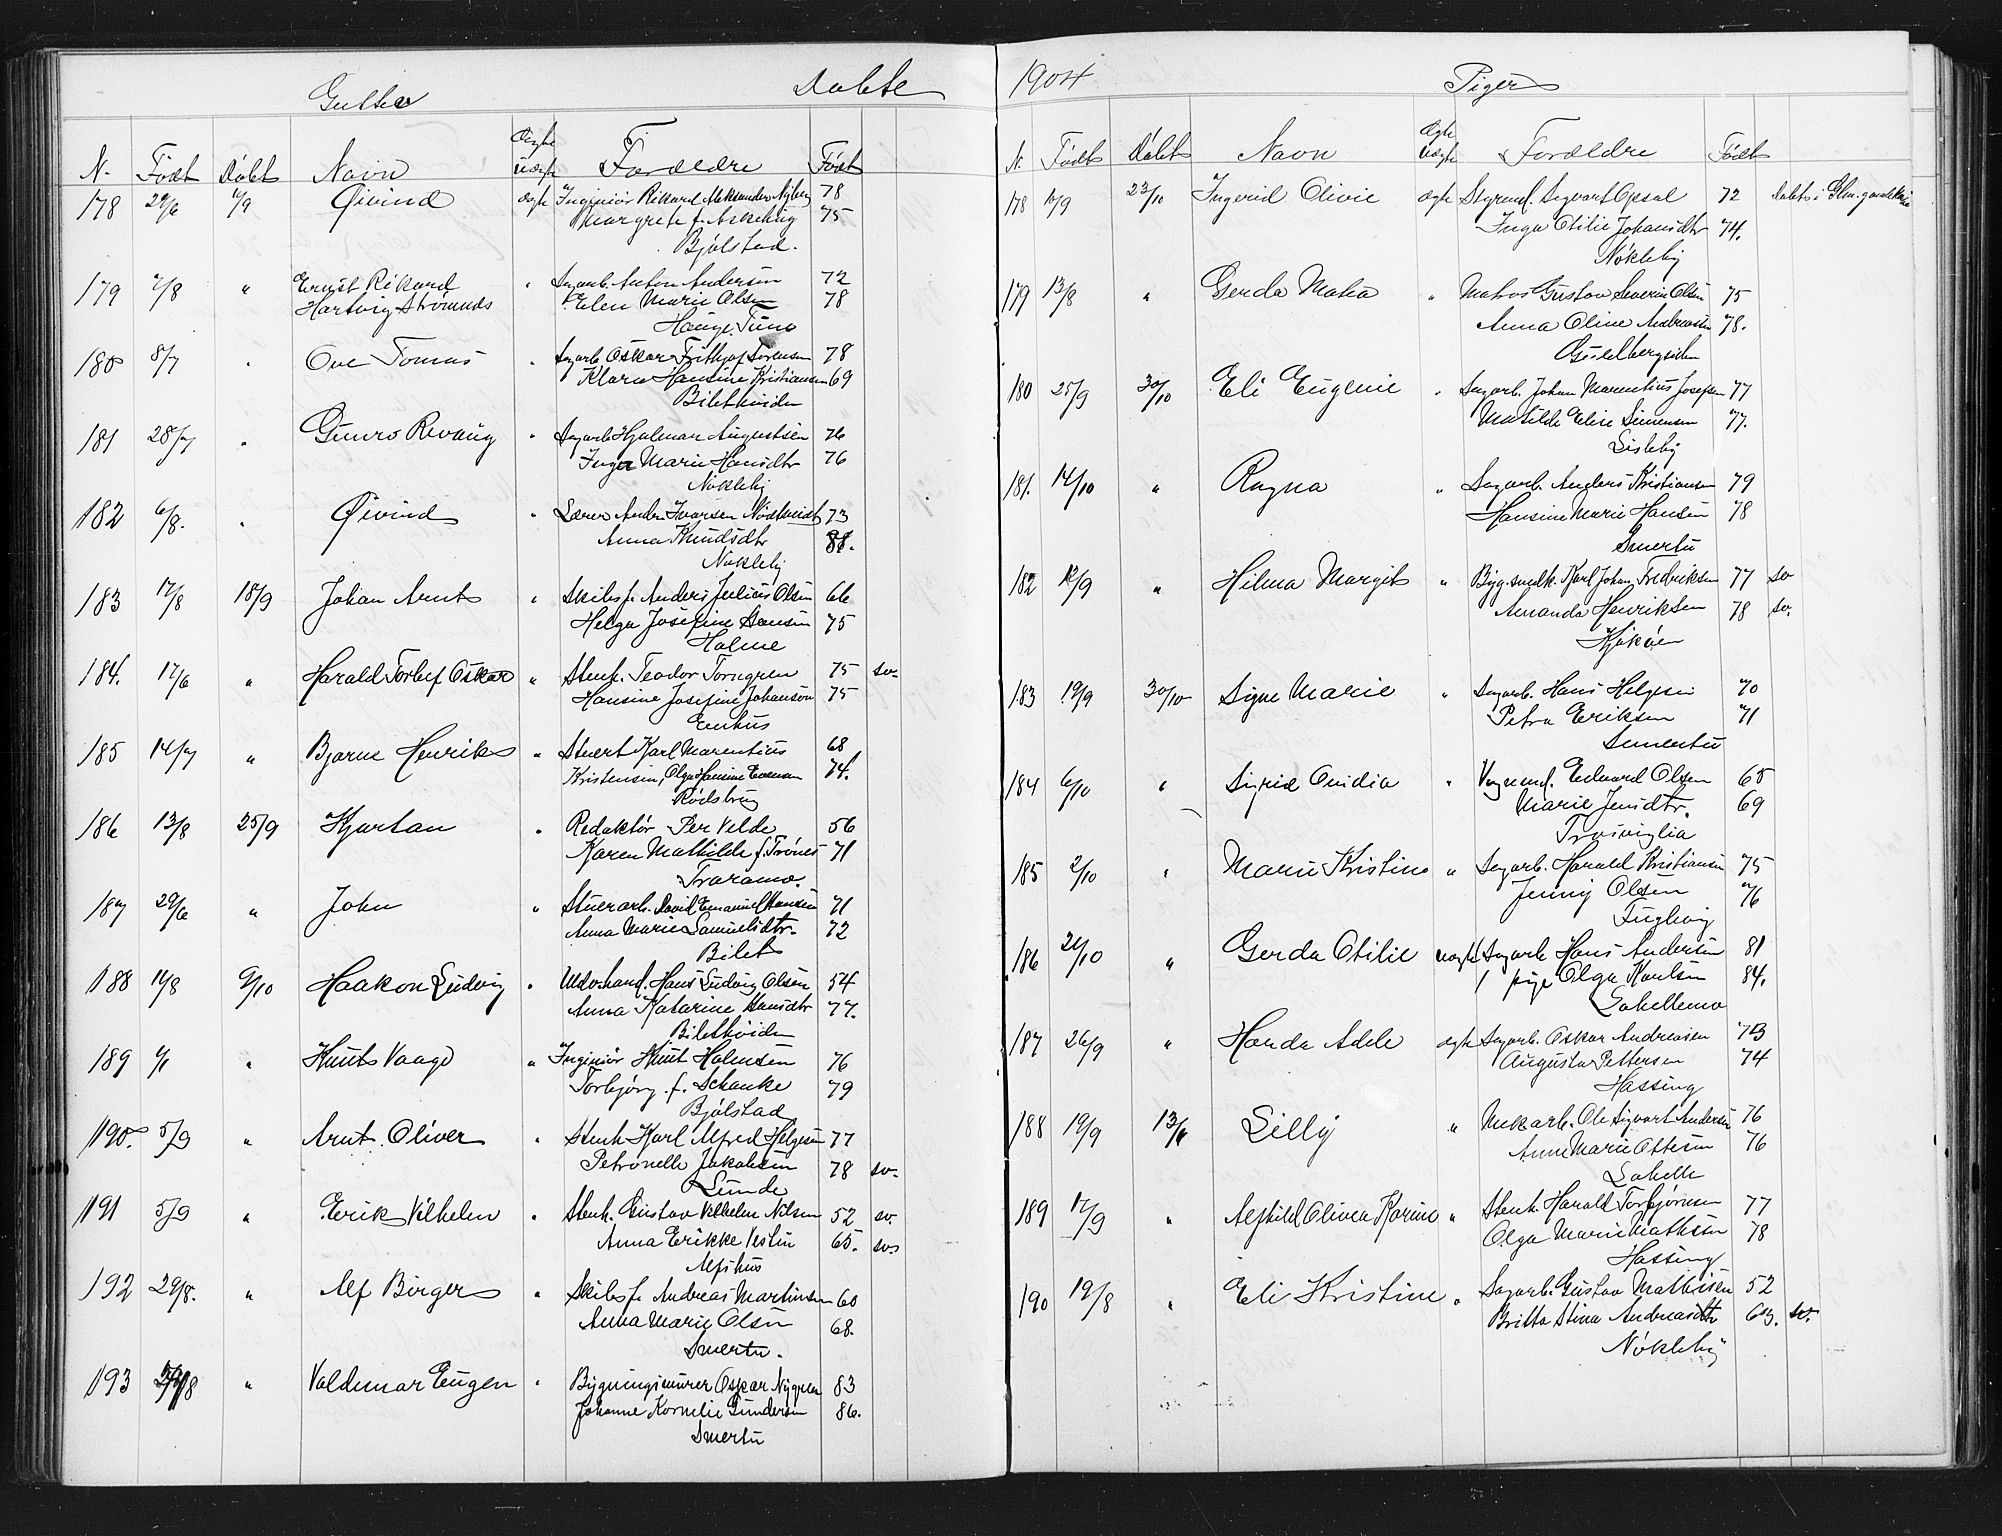 Gutter Døbte
N. Født Døbt Navn Ægte uægte Forældre Født
178 29/6 11/9 Øivind ægte Ingeniør Rikard Aleksander Nyberg 78
Margrete f. Aschehug 75
Bjølstad.
179 7/8 " Ernst Rikard " Sagarb. Anton Andersen 72
Hartvig Strømnäs Elen Marie Olsen 78
Hauge. Tune
180 8/7 " Ove Tomas " Sagarb Oskar Frithjof Sørensen 78
Klara Hansine Kristiansen 69
Biletkvisten
181 28/7 " Gunvo Revaug " Sagarb Hjalmar Augustsen 76
Inga Marie Hansdtr 76
Nøkleby
182 6/8. " Øivind " Lærer Andr. Ivarsen Nödtvedt 73
Anna Knudsdtr 81.
Nøkleby
183 17/8 18/9 Johan Arnt " Skibsf. Anders Julius Olsen 66
Helga Josefine Hansen 75
Holme
184. 17/6 " Harald Torleif Oskar " Stenh. Teodor Torngren 75 sv.
Hansine Josefine Johanson 75
Enhus
185 14/7 " Bjarne Henrik " Stuert Karl Marentius 68
Kristensen, Olga Hansine Evensen 74.
Rødsbrug
186 13/8 25/9 Kjartan " Redaktør Per Velde 56
Karen Mathilde f. Trónes 71
Traramo.
187 29/6 " John " Stuerarb. David Emanuel Hansen 71
Anna Marie Samuelsdtr. 72
Bilet
188 11/8 9/10 Haakon Ludvig " Udv.hand. Hans Ludvig Olsen 54
Anna Katarine Hansdtr 77.
Biletkvisten
189 6/1 " Knut Vaage " Ingeniør Knut Holmsen 76
Torbjørg f. Schanke 79
Bjølstad
190. 5/9 " Arnt Oliver " Stenh Karl Alfred Helgesen 77
Petronelle Jakobsen 78 sv.
Lunde
191 5/9 " Erik Vilhelm " Stenh. Gustav Vilhelm Nilsen 52 sv.
Anna Erikke Vestin 65. sv.
Alfshus
192 29/8. " Alf Birger " Skibsf. Andreas Martinsen 60
Anna Marie Olsen 68.
Smertu.
193 /8 " Valdemar Eugen " Bygningsmurer Oskar Nygren 83
Johanne Kornelie Gundersen 86.
Smertu
1904 Piger
N. Født Døbt Navn Ægte Uægte Forældre Født
178 10/9 23/10 Ingerid Olivie ægte Styrmd. Sigvart Opsal 72 Døbt i Glm.
Inga Otilie Johansdtr 74.
Nøkleby
179 13/8 " Gerda Maria " Matros Gustav Severin Olsen 75
Anna Oline Andreasen 78.
Guldbergsiden
180 25/9 30/10 Eli Eugenie " Sagarb. Johan Marentius Josefsen 77
Matilde Elise Simensen 77.
Lisleby
181. 14/10 " Ragna " Sagarb. Anders Kristiansen 79
Hansine Marie Hansen 78
Smertu
182 12/9 " Hilma Margit " Byg.snedk. Karl Johan Fredriksen 77 sv
Amanda Henriksen 78 sv.
Kjøkøen
183 19/9 30/10 Signe Marie " Sagarb. Hans Helgesen 70
Petra Eriksen 71
Smertu
184 6/10 " Sigrid Ovidia " Vognmd. Edvard Olsen 65
Marie Jensdtr. 69
Trosviglia
185 2/10 " Marie Kristine " Sagarb. Harald Kristiansen 75
Jenny Olsen 76
Fuglevig
186 21/10 " Gerda Otilie uægte Sagarb Hans Andersen 81
pige Olga Karlsen 84.
Labellemo
187 26/9 " Handa Adele ægte Sagarb. Oskar Andreasen 73
Augusta Pettersen 74
Hassing
188 19/9 13/6 Lilly " Mekarb. Ole Sigvart Andersen 76
Anne Marie Ottesen 76
Labelle
189 17/9 " Alfhild Olivea Karine " Stenh. Harald Torbjørnsen 77
Olga Marie Mathisen 78
Hassing
190 19/8 " Eli Kristine " Sagarb. Gustav Mathisen 52
Britta Stina Andreasdtr 63. sv.
Nøkleby